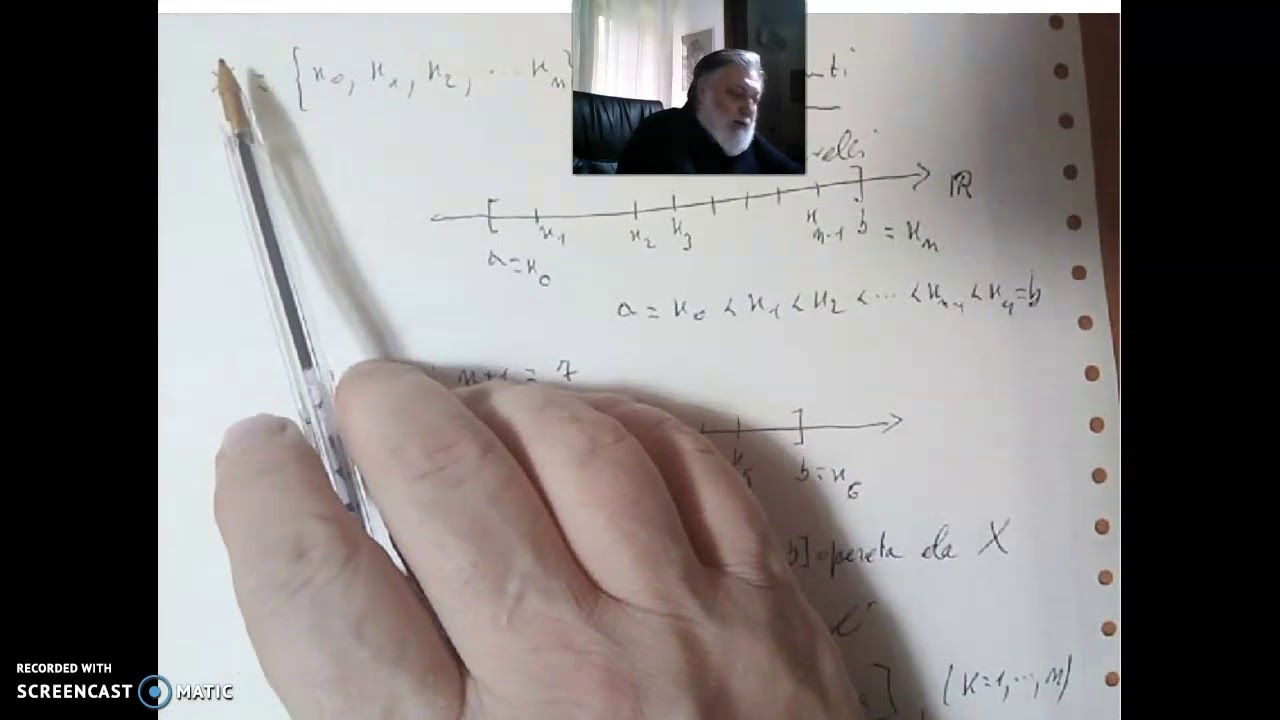 {x₀, x₁, x₂, ... xₙ
ℝ
x₁ x₂ x₃ xₙ₋₁ b = xₙ
a = x₀
a = x₀ < x₁ < x₂ < ... < xₙ₋₁ < xₙ = b
n+1 = 7
b = x₆
b] operata da X
(K=1, ..., n)
RECORDED WITH
SCREENCAST MATIC